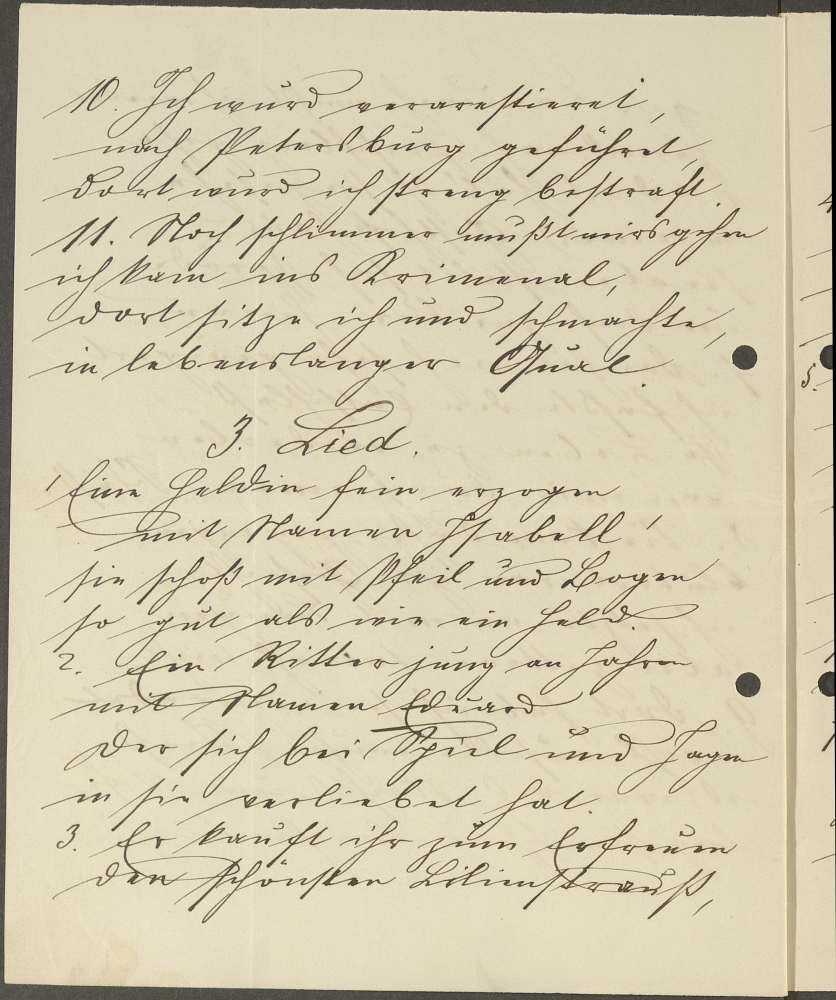 10. Ich wurd verarestieret,
nach Petersburg geführet,
dort wurd ich streng bestraft.
11. Noch schlimmer mußt mirs gehen
ich kam ins Krimenal,
dort sitze ich und schmachte,
in lebenslanger Qual.
3. Lied.
1 Eine Heldin fein erzogen
mit Namen Isabell,
sie schoß mit Pfeil und Bogen
so gut als wie ein Held.
2. Ein Ritter jung an Jahren
mit Namen Eduard
Der sich bei Spiel und Jagen
in sie verliebet hat.
3. Er kauft ihr zum Erfreuen
den schönsten Lilienstrauß,
5.